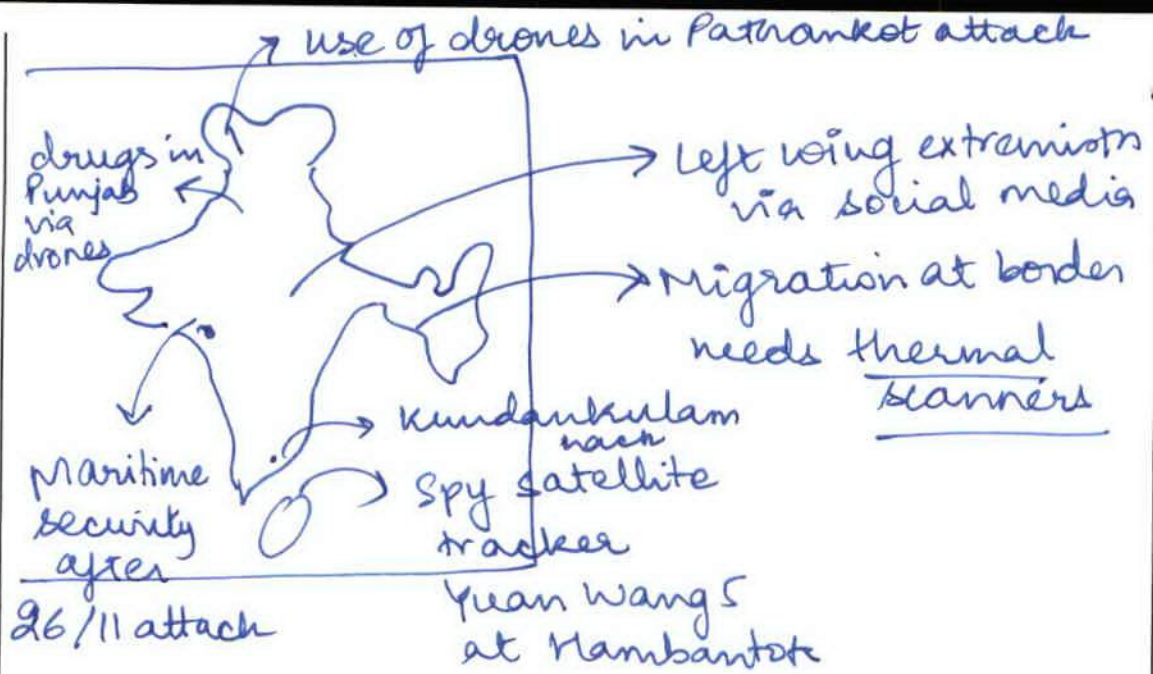 use of drones in Pathankot attack
drugs in
Punjab
via
drones
Left wing extremists
via social media
Migration at border
needs thermal
scanners
Kundankulam
hack
Spy satellite
tracker
Yuan Wang 5
at Hambantota
Maritime
security
after
26/11 attack